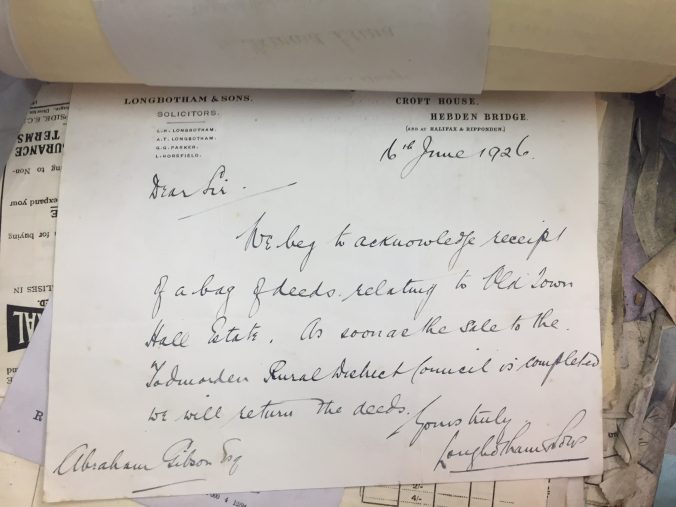 LONGBOTHAM & SONS.
SOLICITORS.
L.H. LONGBOTHAM.
A.T. LONGBOTHAM.
G.G. PARKER.
L. HORSFIELD.
CROFT HOUSE,
HEBDEN BRIDGE.
(AND AT HALIFAX & RIPPONDEN.)
16th June 1926.
Dear Sir.
We beg to acknowledge receipt
of a bag of deeds relating to Old Town
Hall Estate. As soon as the sale to the
Todmorden Rural District Council is completed
we will return the deeds.
Yours truly
Longbotham & Sons
Abraham Gibson Esq
SIDE, E.C.
TERMS
to Non-
expand your
for buying
ALISES IN
ED.
R
2/-
4/-